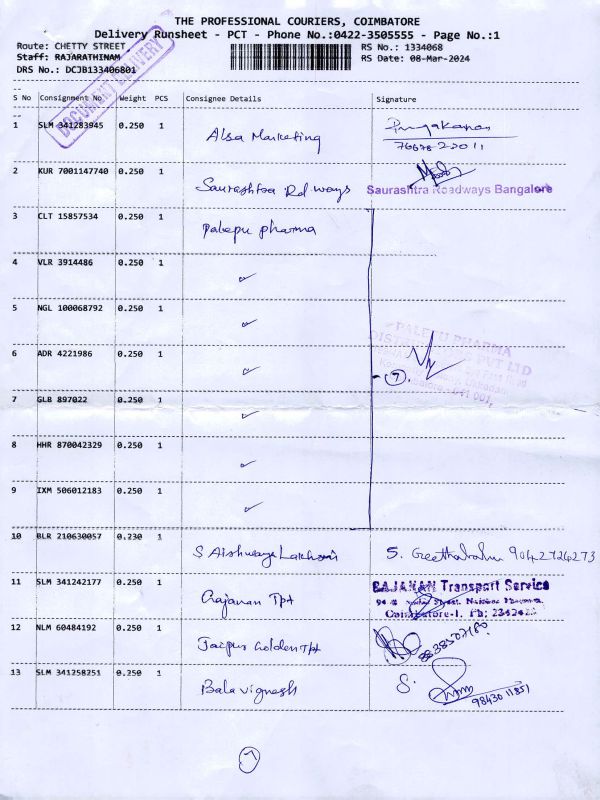 THE PROFESSIONAL COURIERS, COIMBATORE
Delivery Runsheet - PCT - Phone No.:0422-3505555 - Page No.:1
Route: CHETTY STREET RS No.: 1334068
Staff: RAJARATHINAM RS Date: 08-Mar-2024
DRS No.: DCJB133406801
DOCUMENT DELIVERY
S No Consignment No. Weight PCS Consignee Details Signature
1 SLM 341283945 0.250 1 Alsa Marketing
2 KUR 7001147740 0.250 1 Saurashtra Rd ways Saurashtra Roadways Bangalore
3 CLT 15857534 0.250 1 Palepu pharma
4 VLR 3914486 0.250 1 ✓
5 NGL 100068792 0.250 1 ✓
PALEPU PHARMA
PVT LTD
6 ADR 4221986 0.250 1 ✓
7
7 GLB 897022 0.250 1 ✓
8 HHR 870042329 0.250 1 ✓
9 IXM 506012183 0.250 1 ✓
10 BLR 210630057 0.230 1 S Aishwarya Lakhani S. 9042724273
11 SLM 341242177 0.250 1 Gajanan Tpt GAJANAN Transport Service
Coimbatore-1. Ph: 2342423
12 NLM 60484192 0.250 1 Jaipur Golden Tpt
13 SLM 341258251 0.250 1 Bala vignesh S.
9843011851
7